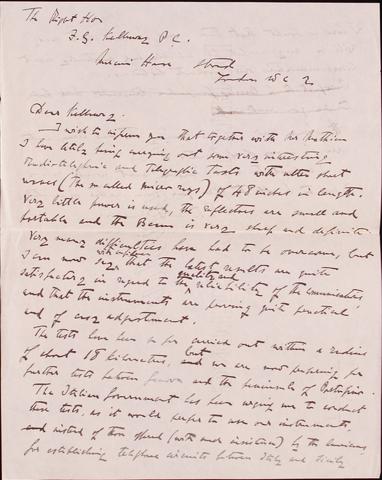 The Right Hon
F. G. Kellaway P.C.
Marconi House Strand
London WC 2
Dear Kellaway.
I wish to inform you that together with Mr Mathieu
I have lately been carrying out some very interesting
Radiotelephonic and Telegraphic Tests with ultra short
waves (the so called micro rays) of 48 inches in length.
Very little power is used, the reflectors are small and
portable and the Beam is very sharp and definite
Very many difficulties have had to be overcome, but
I am now say that the latest results are quite
with
quality and
satisfactory in regard to the reliability of the communications
and that the instruments are proving quite practical
and of easy adjustment.
The tests have so far carried out within a radius
but
of about 18 kilometres, and we are now preparing for
further tests between Genova and the peninsula of Portofino.
The Italian Government has been urging me to conduct
these tests, as it would prefer to use our instruments
and instead of those offered (with much insistence) by the Americans
for establishing telephone circuits between Italy and Sicily